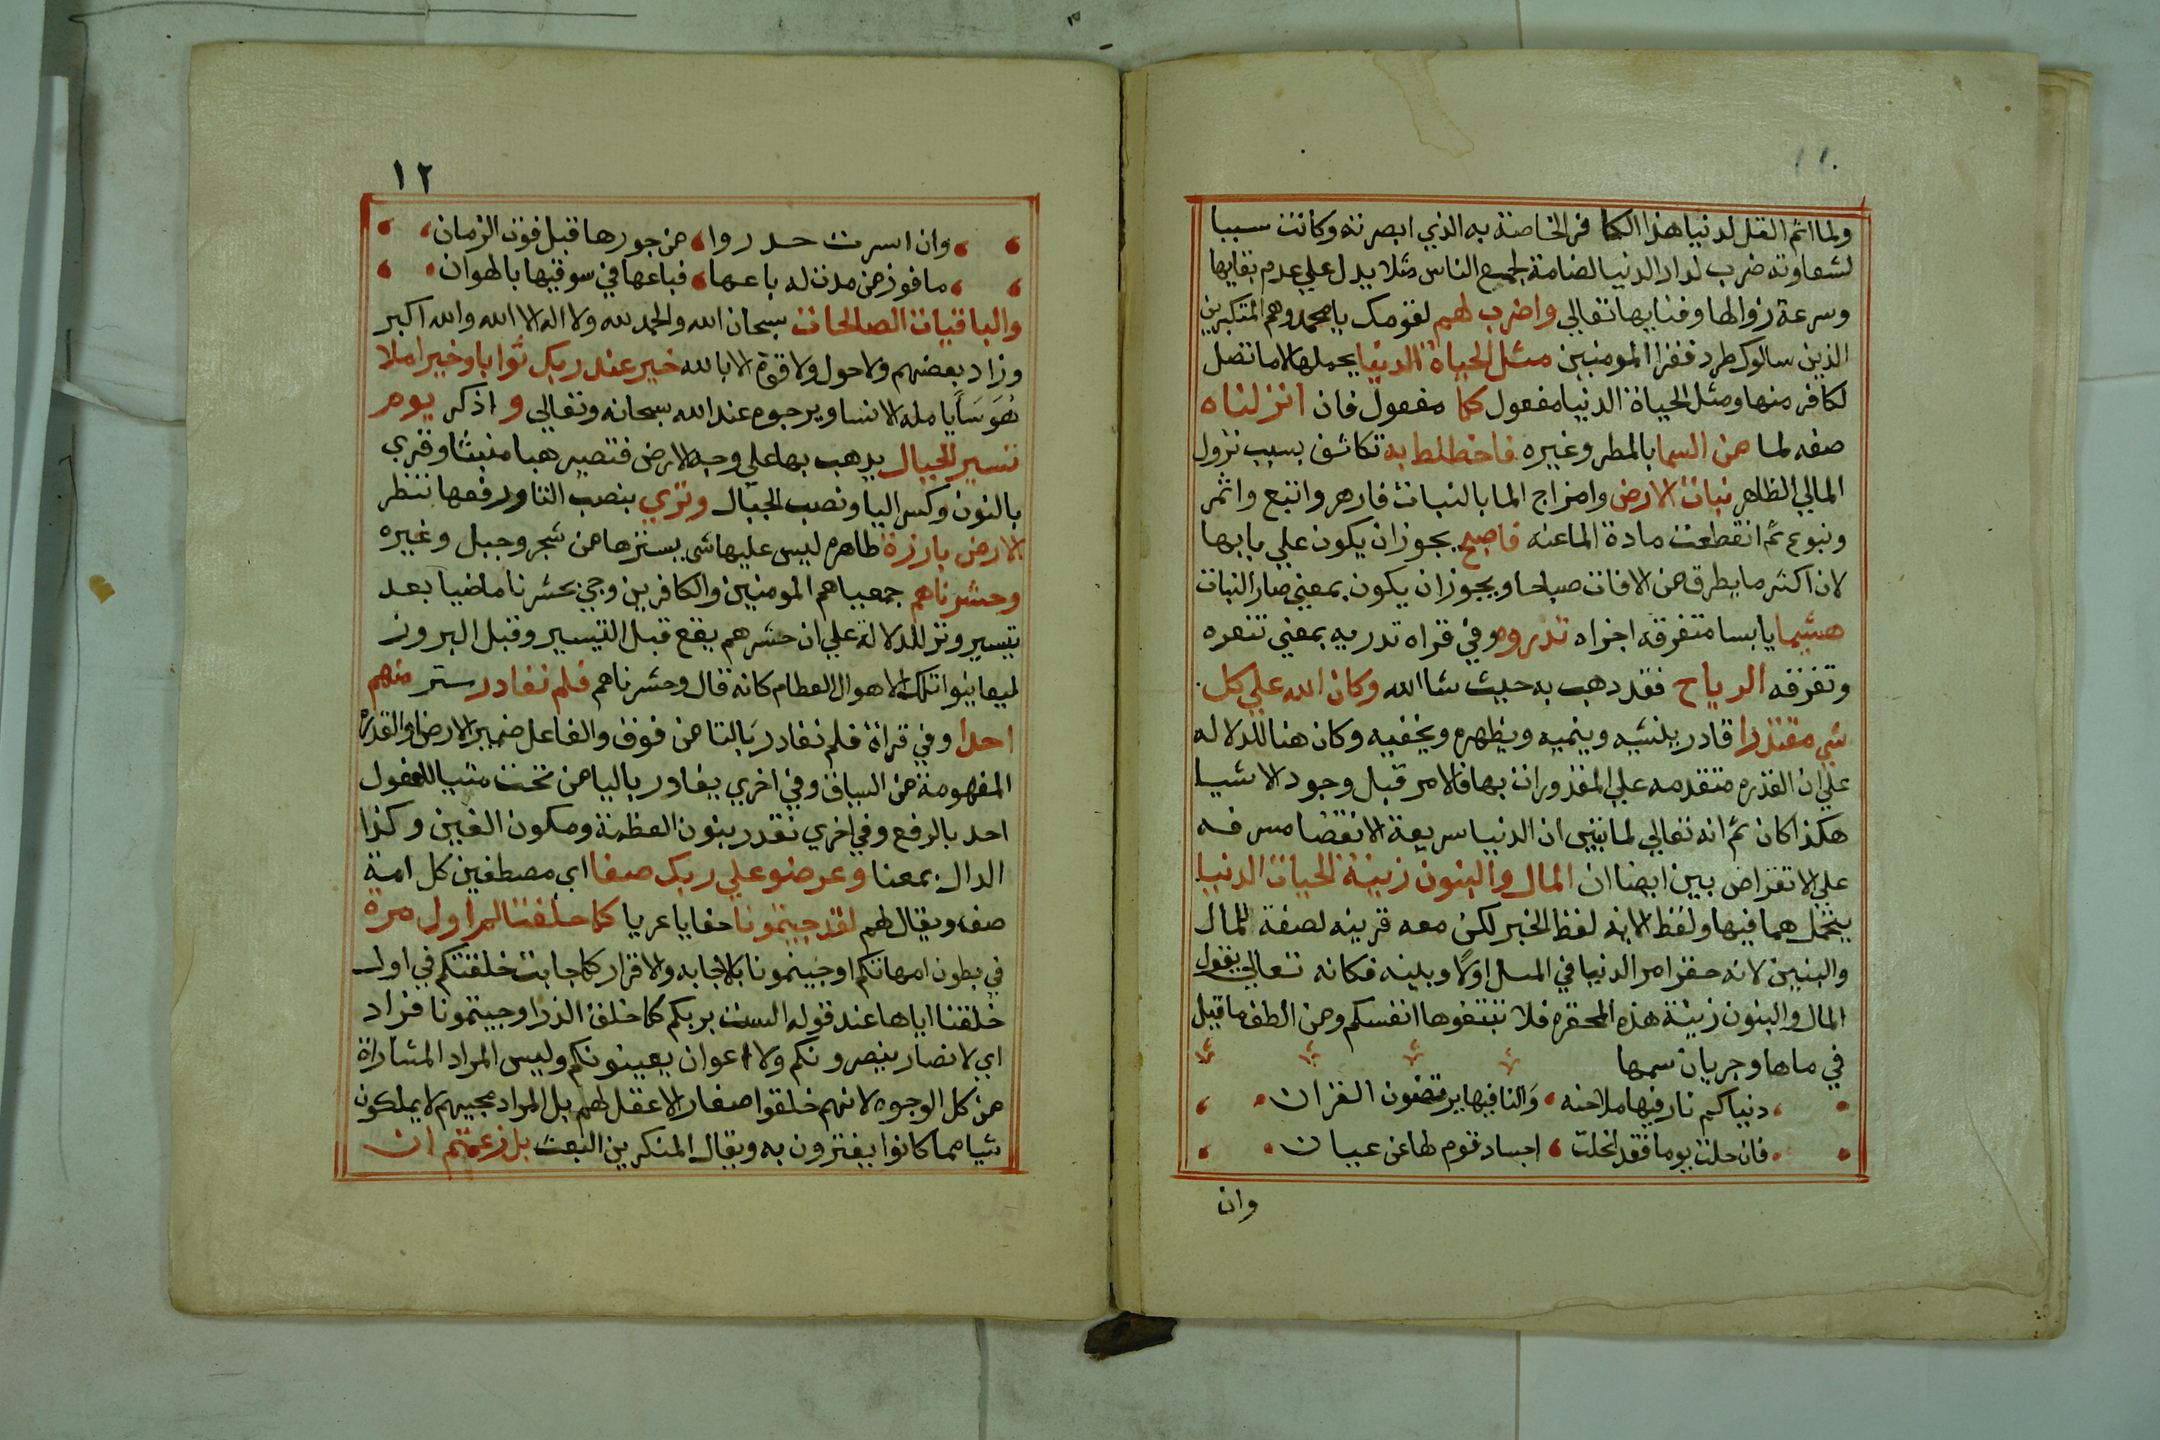 ولما اتم القل لدنيا هذا الكافر الخاصة به الذي ابصرته وكانت سببا
لشقاوته ضرب لدار الدنيا لجميع الناس مثلا يدل علي عدم بقايها
وسرعة زوالها وفنايها تعالي واضرب لهم لقومك يا محمد وهم المتكبرين
الذين سالوك طرد فقرا المومنين مثل الحياة الدنيا يجملها لاما تصل
لكافر منها ومثل الحياة الدنيا مفعول كما مفعول فان انزلناه
صفه لما من السما بالمطر وغيره فاختلط به تكاثف بسبب نزول
المالي الظاهر نبات الارض وامزاج الما بالنبات فازهر واننع واثمر
ونبوع ثم انقطعت مادة الما عنه فاصبح يجوز ان يكون علي بابها
لان اكثر ما يطرق من الافات صباحا ويجوز ان يكون بمعني صار النبات
هشيما يابسا متفرقه اجزاه تذروه وفي قراه تدريه بمعني تنعره
وتفرقه الرياح فقد دهب به حيث شا الله وكان الله علي كل
شي مقتدرا قادر ينشيه وينميه ويظهره ويخفيه وكان هنا للدلاله
علي ان القدره متقدمه علي المقدورات بها فالامر قبل وجود الاشيا
هكذا كان ثم انه تعالي لما بين ان الدنيا سريعة الانقضا مسرفه
علي الاتقراض بين ايضا ان المال والبنون زينة الحيات الدنيا
يتجمل هما فيها ولفظ الايه لفظ الخبر لكن معه قرينه لصفة للمال
والبنين لانه حقر امر الدنيا في المسل اولا وبلينه فكانه تعالي يقول
المال والبنون زينة هذه المحقره فلا تبتغوها انفسكم ومن الطف ما قيل
في ماها وجريان سمها
دنياكم نار فيها ملاحنه والنا فيها يرتضون الغزان
فان حلت يوما فقد انحلت اجساد قوم طها عن عيان
وان
١٢
وان اسرت حدروا من جورها قبل فوت الزمان
ما فوز من مدت له باعها فباعها في سوقيها بالهوان
والباقيات الصالحات سبحان الله والحمد لله ولا اله الا الله والله اكبر
وزاد بعضهم ولا حول ولا قوة الا بالله خير عند ربك ثوابا وخير املا
هو ما يامله الانسا ويرجوه عند الله سبحانه وتعالي و اذكر يوم
نسير الجبال يدهب بها علي وجه الارض فتصير هبا منبثا وقري
بالنون وكسر اليا ونصب الجبال وتري بنصب التا ورفعها ننظر
الارض بارزة ظاهره ليس عليها شي يسترها من شجر وجبل وغيره
وحشرناهم جمعياهم المومنين والكافرين وجي بحشرنا ماضيا بعد
تيسير وتر للدلالة علي ان حشرهم يقع قبل التيسير وقبل البروز
ليعاينوا تلك الاهوال العطام كانه قال وحشرناهم فلم نغادر ستر منهم
احدا وفي قراة فلم تغادر بالتا من فوف والفاعل ضمير الارض او القدره
المفهومة من السياق وفي اخري يغادر باليا من تحت مبنيا للمفعول
احد بالرفع وفي اخري نغدر بنون العظمة وسكون الغين وكذا
الدال بمعنا وعرضو علي ربك صفا اي مصطفين كل امة
صف ويقال لهم لقد جيتمونا حفايا عريا كما خلقناكم اول مرة
في بطون امهاتكم او جيتمونا بالاجابه والاقرار كما جابت خلقتكم في اول
خلقنا اياها عند قوله الست بربكم كما خلقت الذرا وجيتمونا فراد
اي لا نصار ينصرونكم ولا اعوان يعينونكم وليس المراد المشاراة
من كل الوجوه لانهم خلقوا صغار لا عقل لهم بل المراد مجيهم لا يملكون
شيا مما كانوا يفترون به ويقال المنكرين البعث بل زعمتم ان